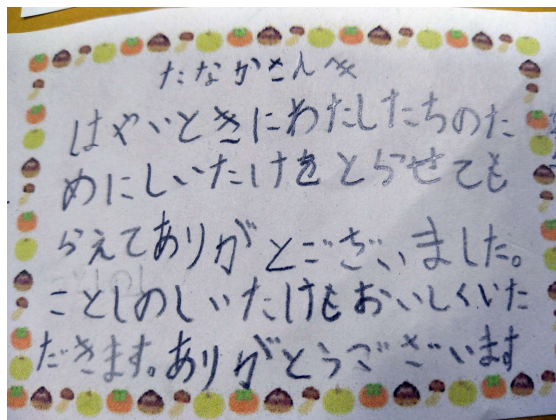 たなかさんへ
はやいときにわたしたちのた
めにしいたけをとらせても
らえてありがとございました。
ことしのしいたけもおいしくいた
だきます。ありがとうございます